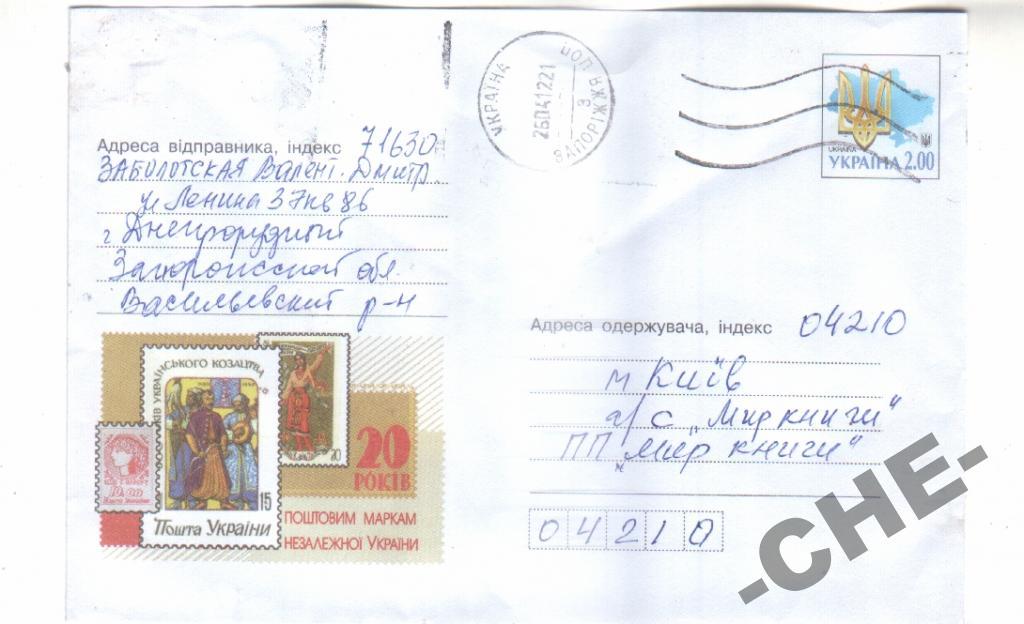 УКРАЇНА
26041221
ЗАПОРІЖЖЯ
3
UKRAINA
УКРАЇНА 2.00
Адреса відправника, індекс 71630
ЗАБОЛОТСКАЯ Валент. Дмитр
ул Ленина 37кв86
г Днепрорудный
Запорожской обл.
Васильевский р-н
УКРАЇНСЬКОГО КОЗАЦТВА
15
Пошта України
20
10.00
20
РОКІВ
ПОШТОВИМ МАРКАМ
НЕЗАЛЕЖНОЇ УКРАЇНИ
Адреса одержувача, індекс 04210
м Київ
а/с „Мир книги"
ПП „Мир книги"
04210
-CHE-